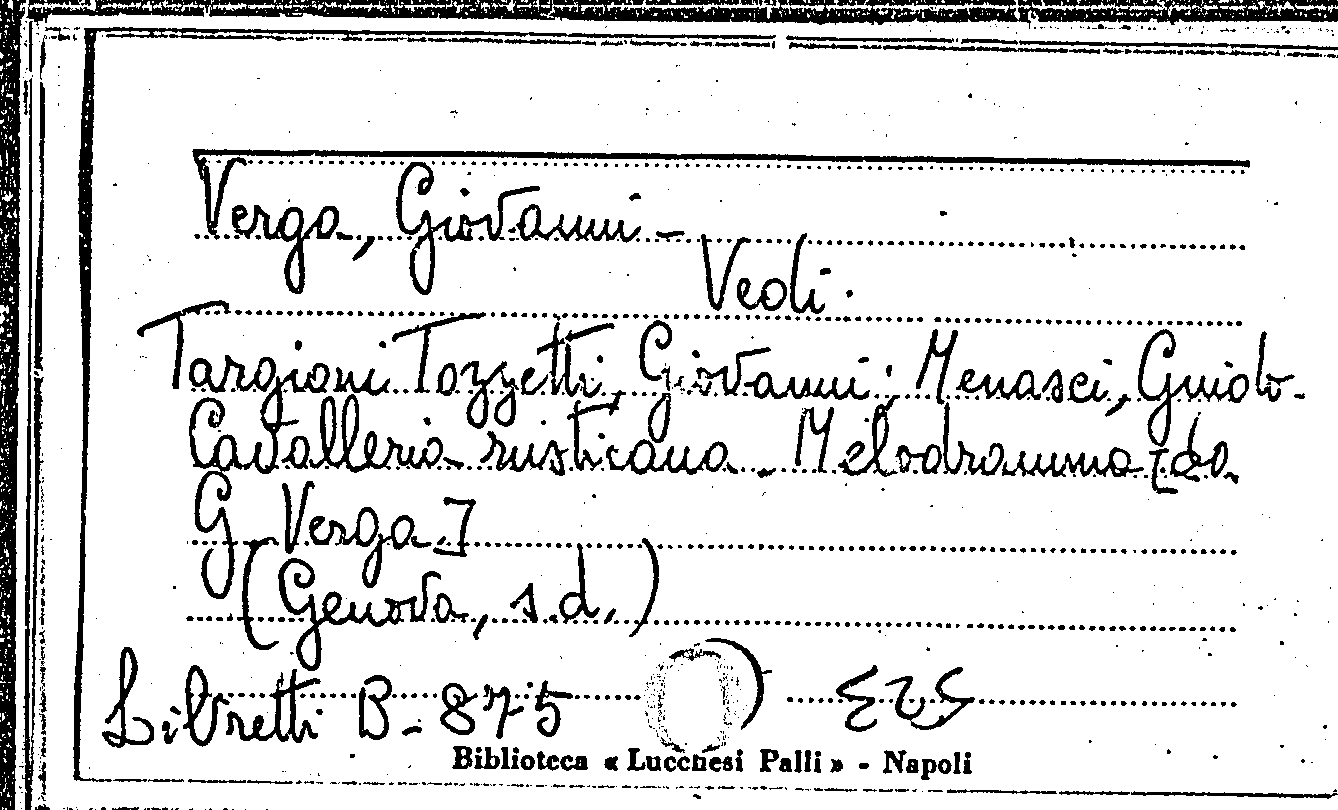 Verga, Giovanni -
Vedi.
Targioni Tozzetti, Giovanni; Menasci, Guido -
Cavalleria rusticana - Melodramma [da
G. Verga]
(Genova, s.d.)
Libretti B - 875
Biblioteca « Lucchesi Palli » - Napoli